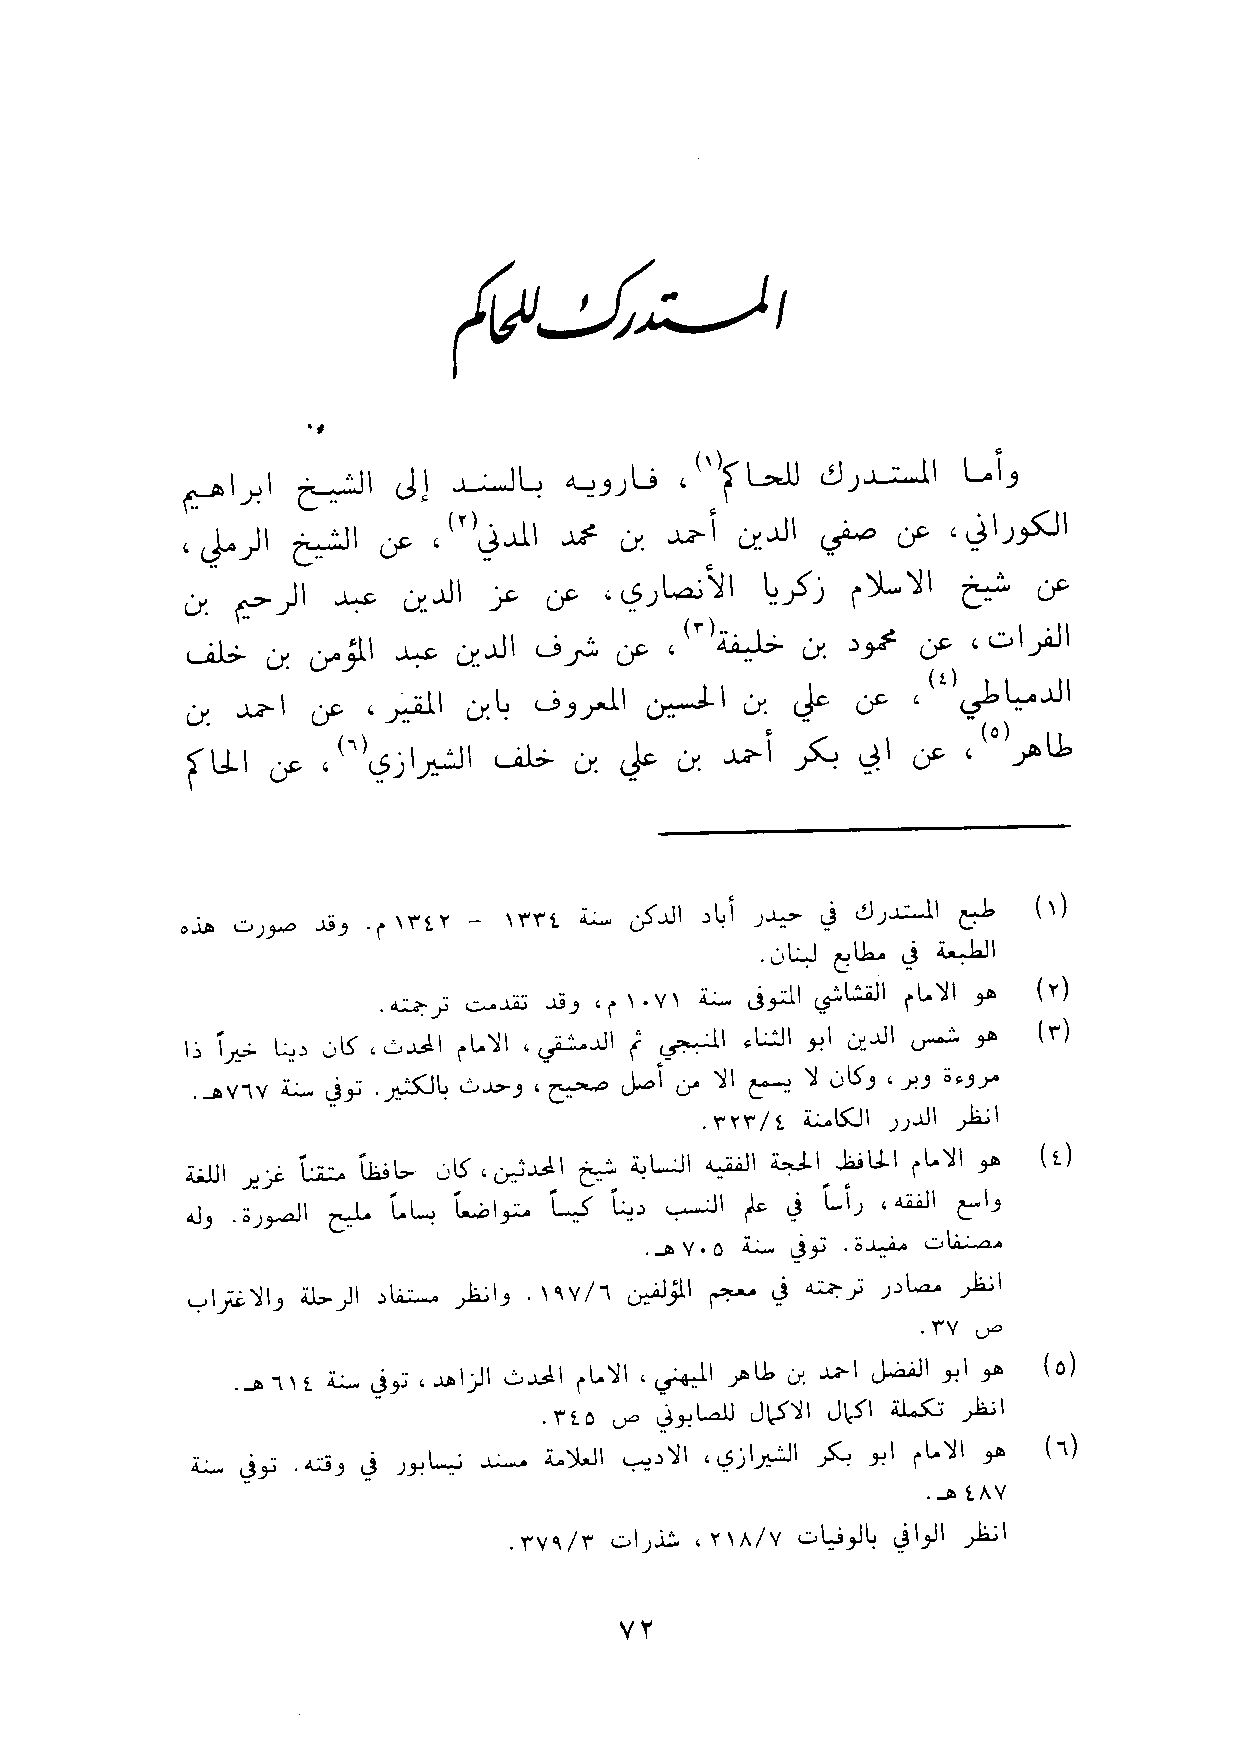 المستدرك للحاكم
وأما المستدرك للحاكم(١)، فارويه بالسند إلى الشيخ ابراهيم
الكوراني، عن صفي الدين أحمد بن محمد المدني(٢)، عن الشيخ الرملي،
عن شيخ الاسلام زكريا الأنصاري، عن عز الدين عبد الرحيم بن
الفرات، عن محمود بن خليفة(٣)، عن شرف الدين عبد المؤمن بن خلف
الدمياطي(٤)، عن علي بن الحسين المعروف بابن المقير، عن احمد بن
طاهر(٥)، عن ابي بكر أحمد بن علي بن خلف الشيرازي(٦)، عن الحاكم
(١) طبع المستدرك في حيدر أباد الدكن سنة ١٣٣٤ - ١٣٤٢ م. وقد صورت هذه
الطبعة في مطابع لبنان.
(٢) هو الامام القشاشي المتوفى سنة ١٠٧١ م، وقد تقدمت ترجمته.
(٣) هو شمس الدين ابو الثناء المنبجي ثم الدمشقي، الامام المحدث، كان دينا خيراً ذا
مروءة وبر، وكان لا يسمع الا من أصل صحيح، وحدث بالكثير. توفي سنة ٧٦٧هـ.
انظر الدرر الكامنة ٣٢٣/٤.
(٤) هو الامام الحافظ الحجة الفقيه النسابة شيخ المحدثين، كان حافظاً متقناً غزير اللغة
واسع الفقه، رأساً في علم النسب ديناً كيساً متواضعاً بساماً مليح الصورة. وله
مصنفات مفيدة. توفي سنة ٧٠٥ هـ.
انظر مصادر ترجمته في معجم المؤلفين ١٩٧/٦. وانظر مستفاد الرحلة والاغتراب
ص ٣٧.
(٥) هو ابو الفضل احمد بن طاهر الميهني، الامام المحدث الزاهد، توفي سنة ٦١٤ هـ.
انظر تكملة اكمال الاكمال للصابوني ص ٣٤٥.
(٦) هو الامام ابو بكر الشيرازي، الاديب العلامة مسند نيسابور في وقته. توفي سنة
٤٨٧ هـ.
انظر الوافي بالوفيات ٢١٨/٧، شذرات ٣٧٩/٣.
٧٢